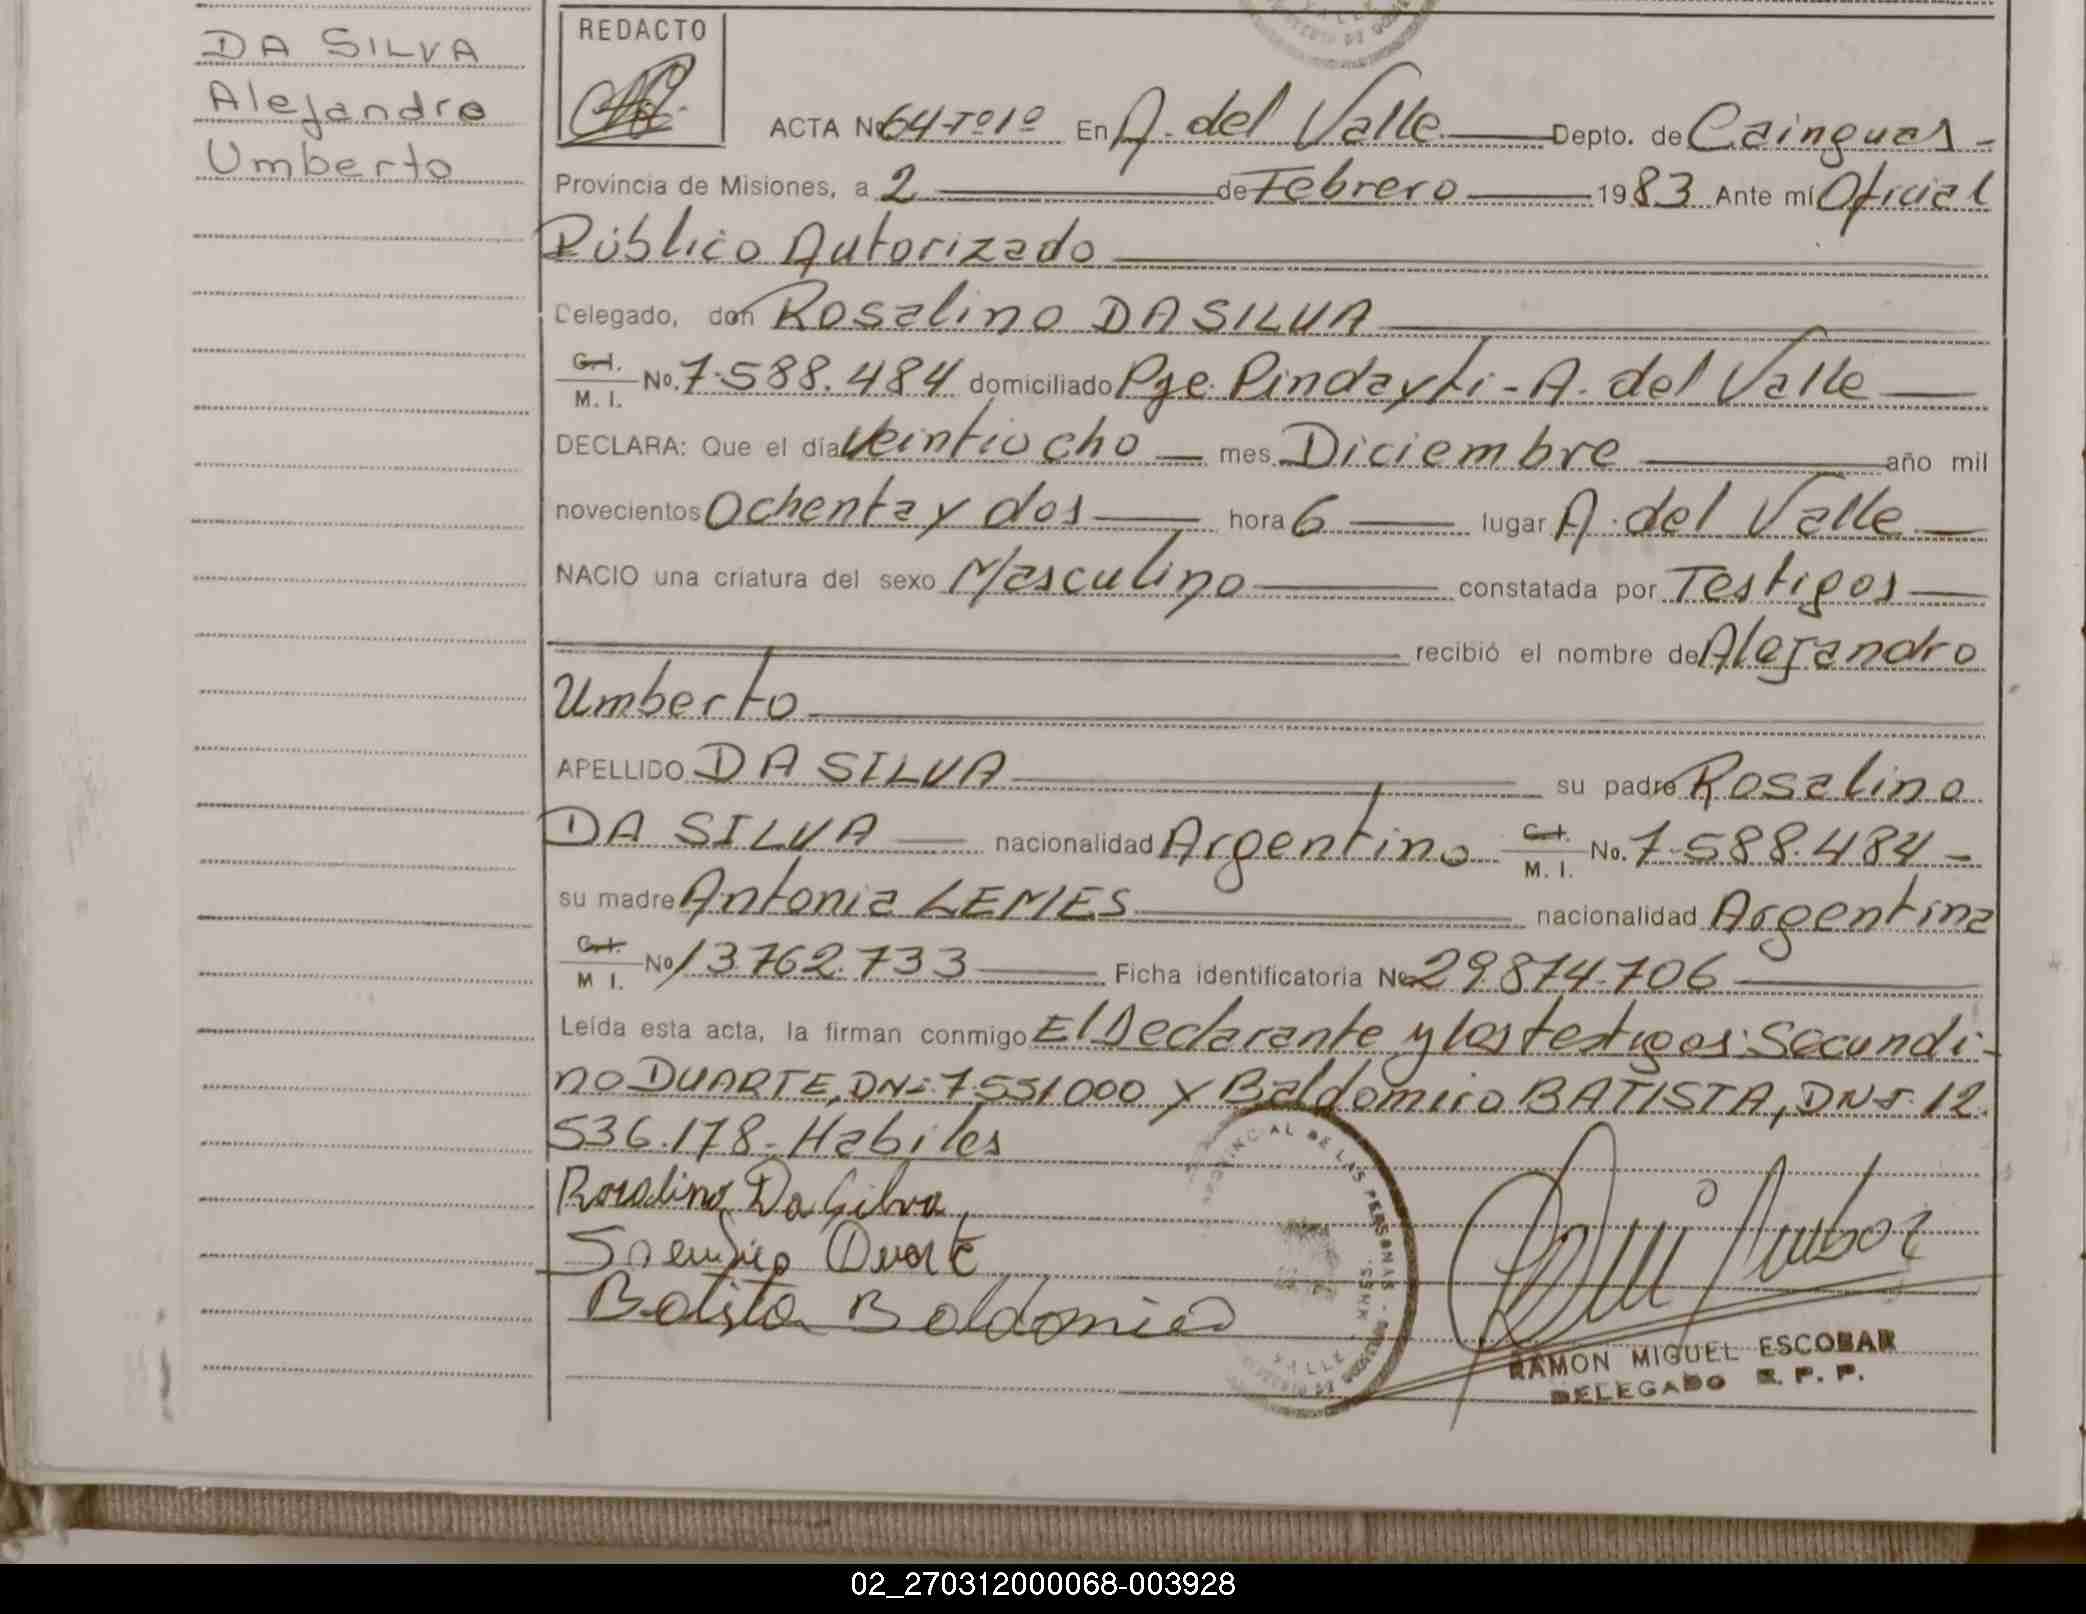 DA SILVA
Alejandro
Umberto
REDACTO
ACTA No 64-Tº1º En A. del Valle Depto. de Cainguas -
Provincia de Misiones, a 2 de Febrero 1983 Ante mí Oficial
Público Autorizado
Delegado, don Rosalino DA SILVA
C.I. M. I. No. 7.588.484 domiciliado Pje. Pindayti - A. del Valle
DECLARA: Que el día Veintiocho mes Diciembre año mil
novecientos Ochenta y dos hora 6 lugar A. del Valle
NACIO una criatura del sexo Masculino constatada por Testigos
recibió el nombre de Alejandro
Umberto
APELLIDO DA SILVA su padre Rosalino
DA SILVA nacionalidad Argentino C.I. M. I. No. 7.588.484 -
su madre Antonia LEMES nacionalidad Argentina
C.I. M I. No 13.762.733 Ficha identificatoria No 29.874.706
Leída esta acta, la firman conmigo El Declarante y los testigos: Secundi-
no DUARTE, DNI: 7.551.000 y Baldomiro BATISTA, DNI. 12.
536.178. Habiles
Rosalino Da Silva
Duarte
Batista Baldomiro
PROVINCIAL DE LAS PERSONAS
VALLE
RAMON MIGUEL ESCOBAR
DELEGADO R. P. P.
02_270312000068-003928